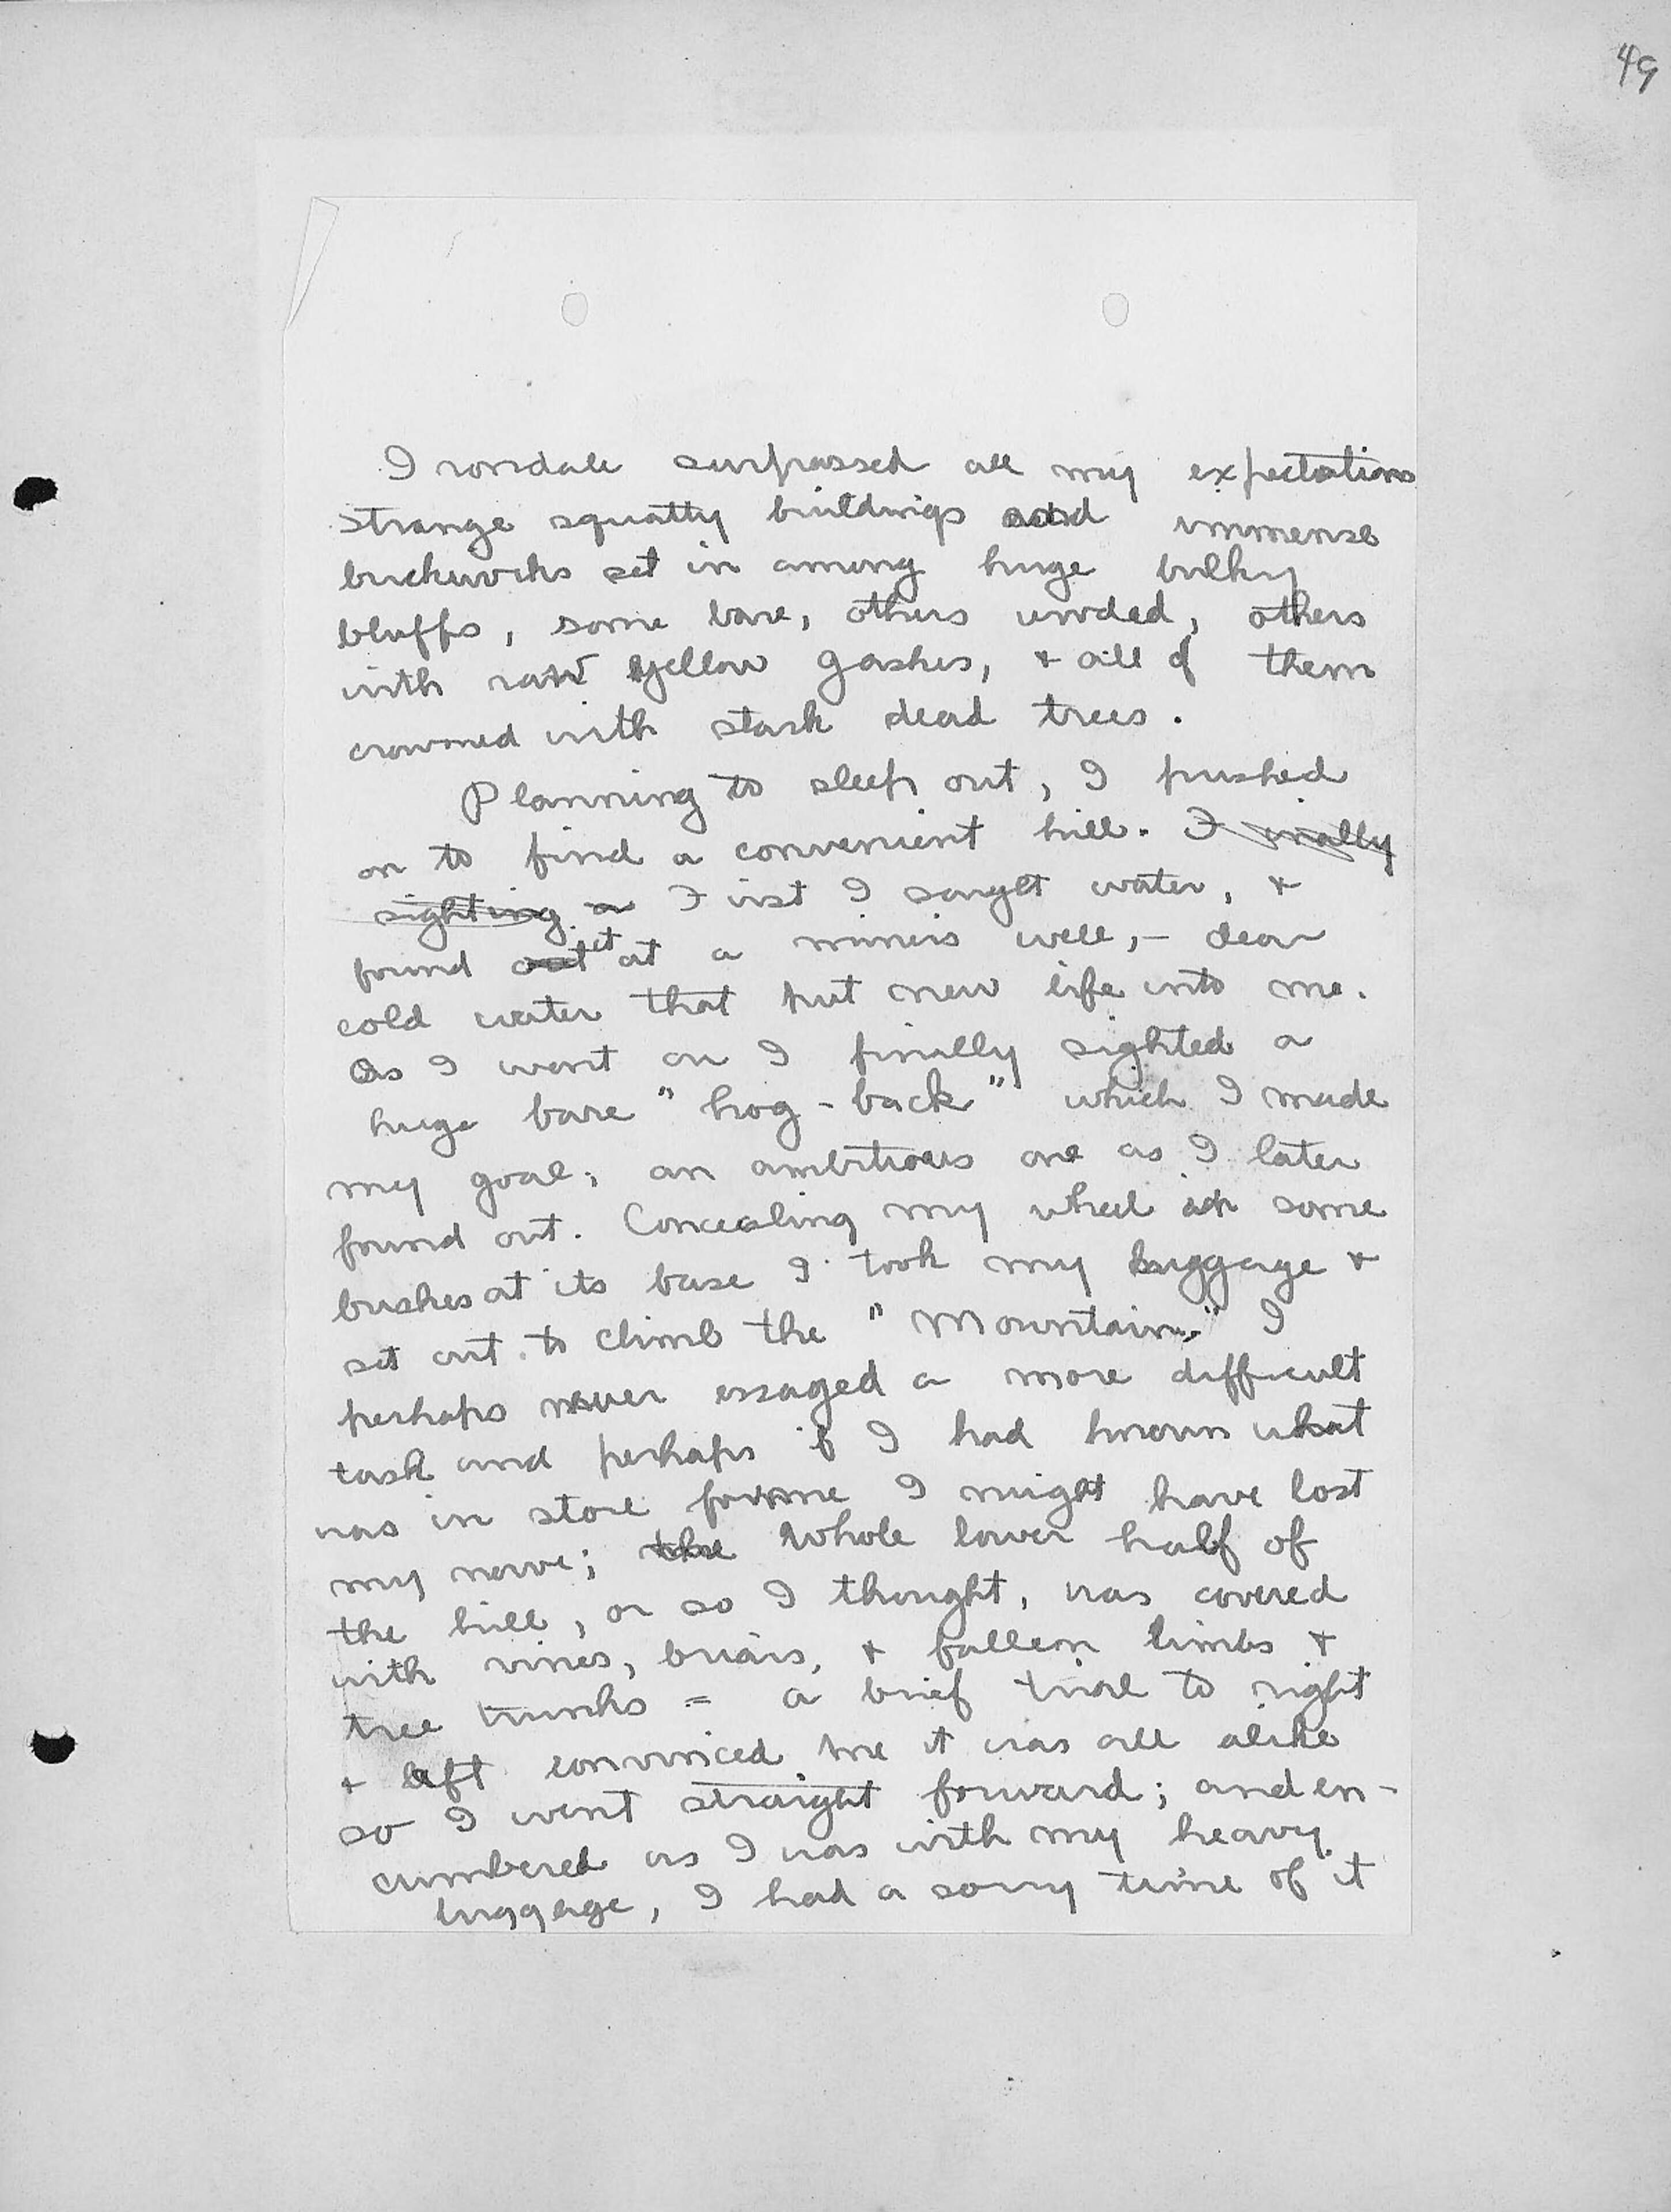 49
Irondale surpassed all my expectations
strange squatty buildings and immense
brickworks set in among huge bulky
bluffs, some bare, others wooded, others
with raw yellow gashes, & all of them
crowned with stark dead trees.
Planning to sleep out, I pushed
on to find a convenient hill. Finally
sighting a First I sought water, &
found out it at a miners well, – clear
cold water that put new life into me.
As I went on I finally sighted a
huge bare "hog-back" which I made
my goal; an ambitious one as I later
found out. Concealing my wheel in some
bushes at its base I took my luggage &
set out to climb the "Mountain." I
perhaps never essayed a more difficult
task and perhaps if I had known what
was in store for me I might have lost
my nerve; the whole lower half of
the hill, or so I thought, was covered
with vines, briars, & fallen limbs &
tree trunks = a brief trial to right
& left convinced me it was all alike
so I went straight forward; and en-
cumbered as I was with my heavy
luggage, I had a sorry time of it